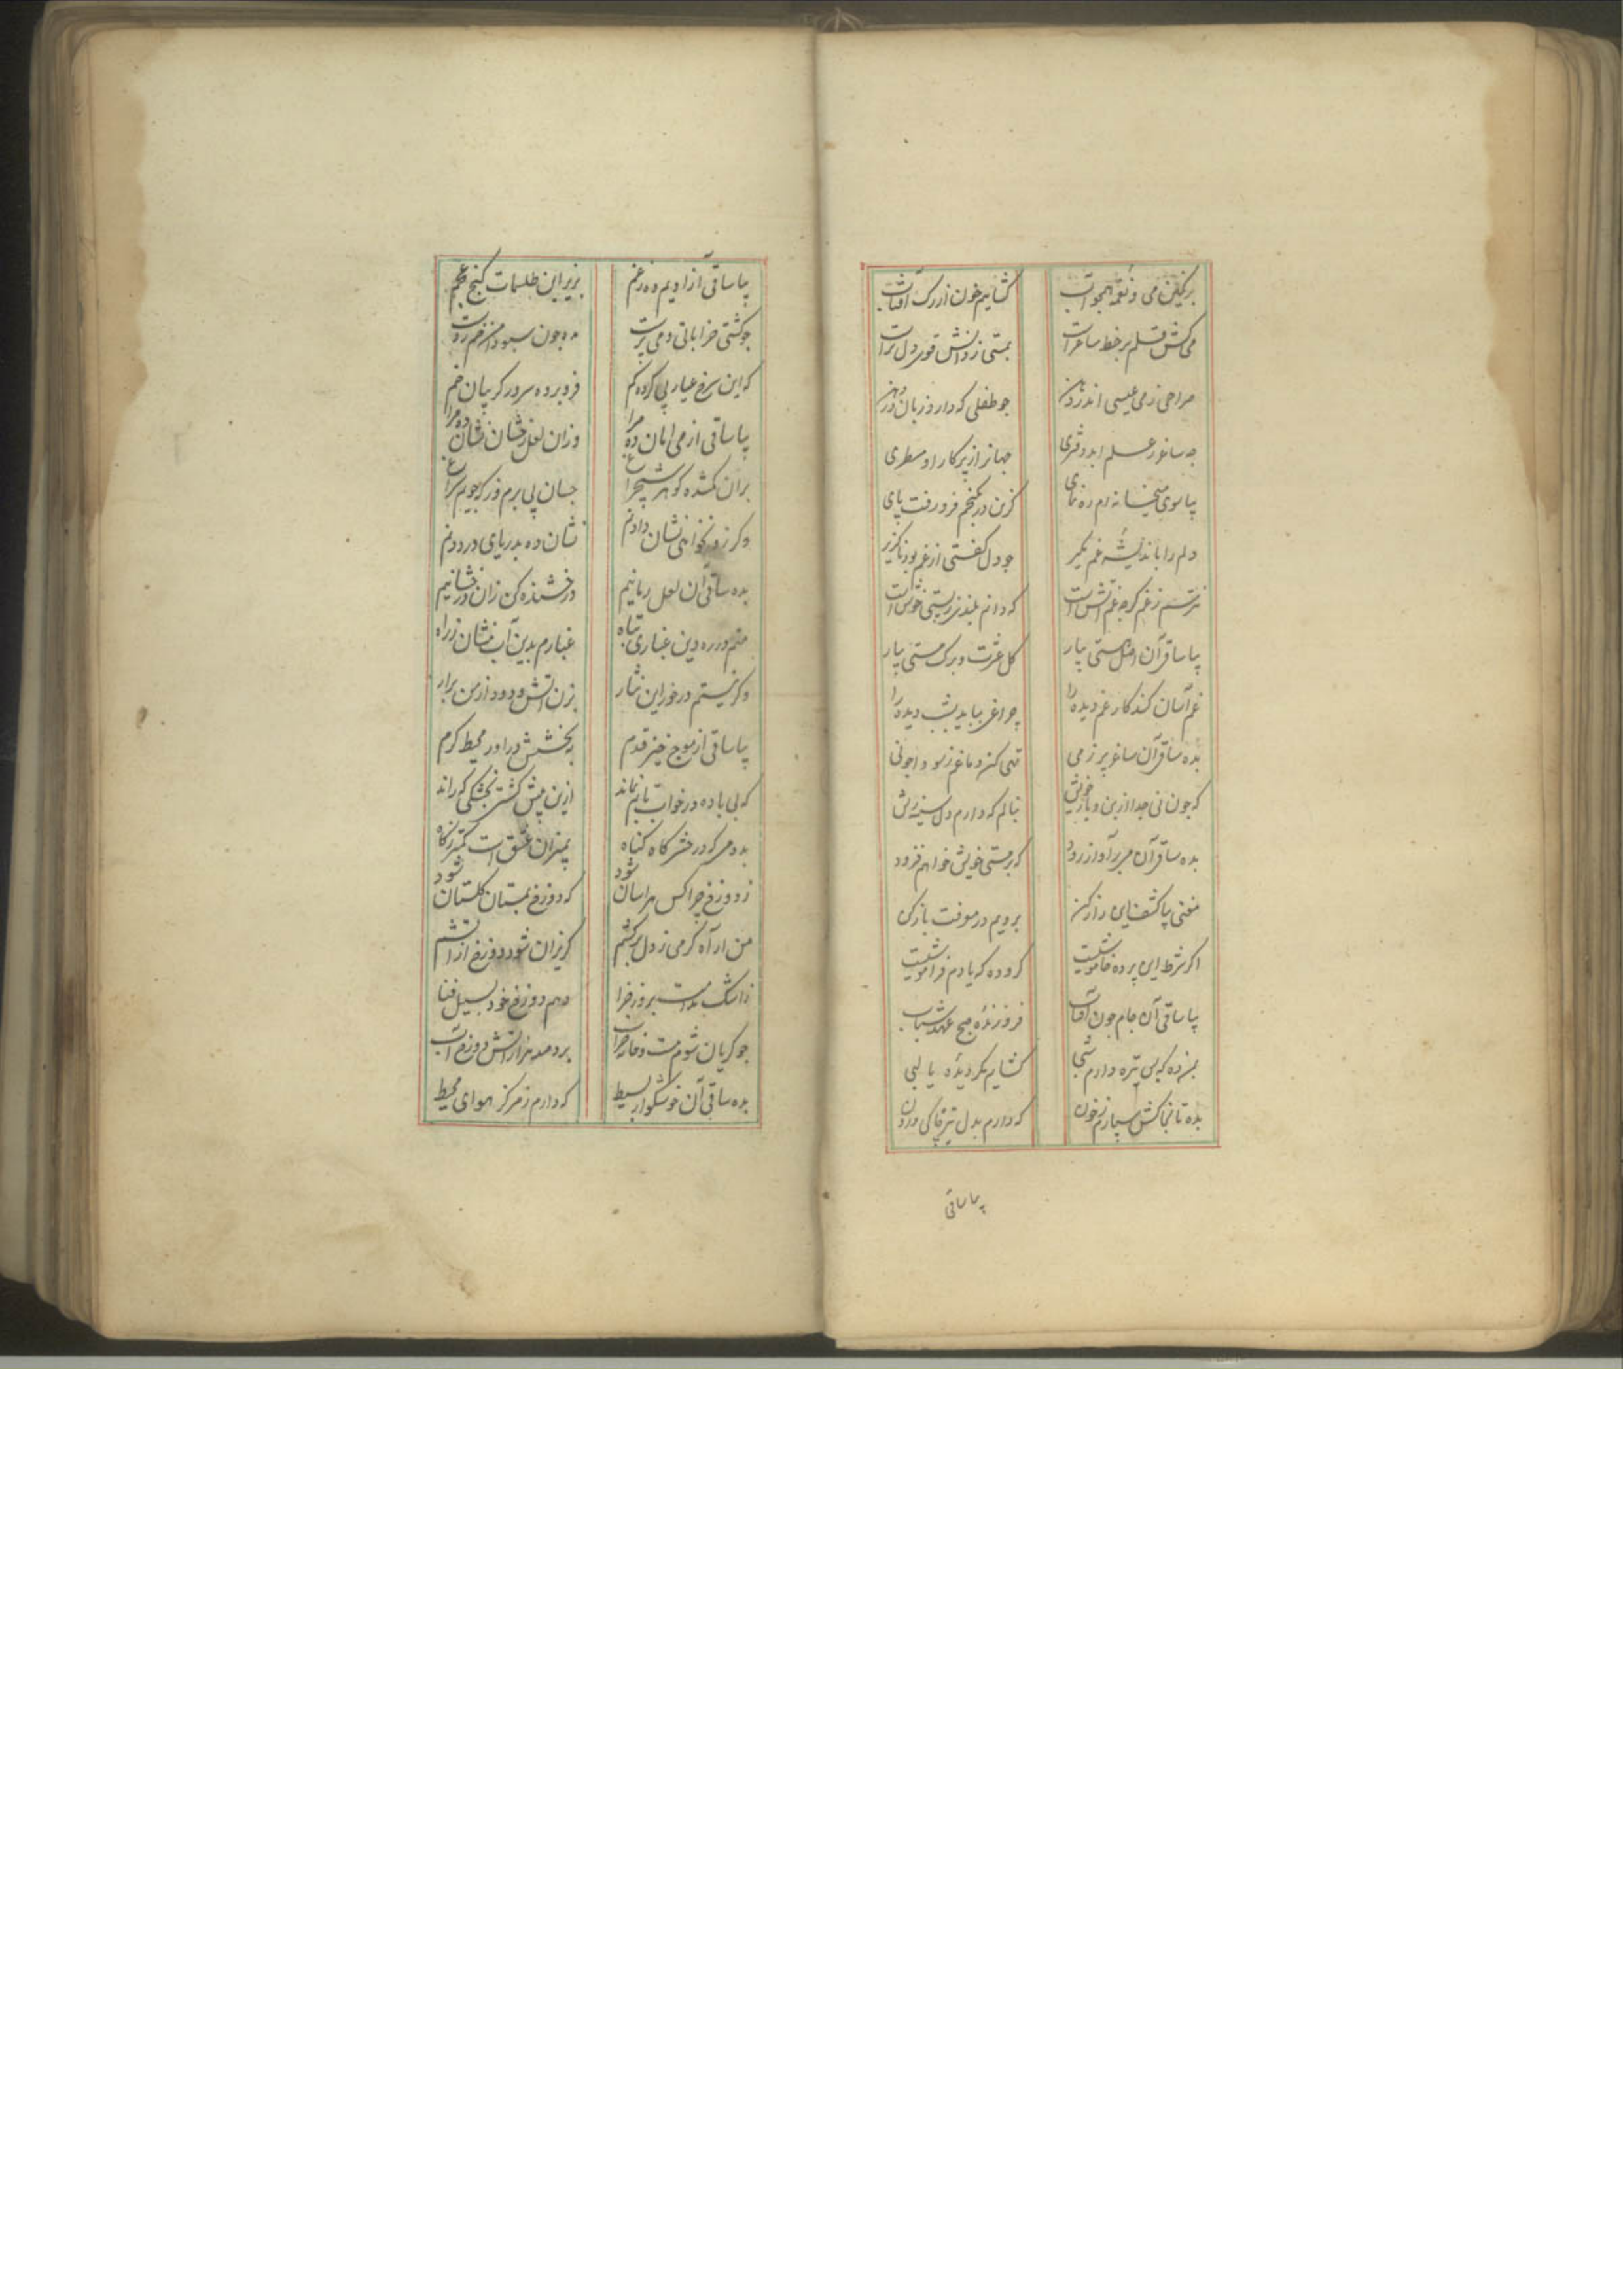 برنگین می و نغمه همچو آب
کشایم خون از رک آفتاب
می کش قلم بر خط ساغرات
بمستی ز دانش قوی دل تراست
صراحی ز می عیسی اندر
چو طفلی که دارد زبان در
چه ساغر ز علم ابد دفتری
جهانرا ز پرکار او مسطری
بیا سوی میخانه ام ره نمای
کزین در بکنجم فرو رفت پای
دلم را باندیشه غم مکیر
چو دل کفتی از غم بود ناکزیر
نترسم ز غم کرچه غم آتش است
که دانم بلندی و پستی خوش است
بیا ساقی آن اصل هستی بیار
کل عشرت و برک مستی بیار
غم آسان کند کار غم دیده را
چراغی بباید شب دیده را
بده ساقی آن ساغر پر ز می
تهی کن دماغم ز سودا چو نی
که چون نی جدا از بن و بار خویش
بنالم که دارم دل سینه ریش
بده ساقی آن می برآواز رود
که بر مستی خویش خواهم فزود
مغنی بیا کشف این راز کن
برویم در معرفت باز کن
اکر شرط این پرده خاموشیست
کرو ده که یادم فراموشیست
بیا ساقی آن جام چون آفتاب
فروزنده صبح عهد شباب
بمن ده که بس تیره دارم شبی
کشایم مکر دیده یا لبی
بده تا بخاکش سپارم ز خون
که دارم بدل تیر خاکی درون
بیا ساقی
بیا ساقی آزادیم ده ز غم
بزیر این طلسمات کنج عجم
چو کشتی خراباتی و می پرست
مده چون سبو دامن خم ز دست
که این سرخ عیار پی کرده کم
فرو برده سر در کریبان خم
بیا ساقی از می امان ده مرا
وزان لعل رخشان نشان ده مرا
بران کمشده کوهر شبچراغ
چسان پی برم ور که جویم سراغ
وکر زو نخواهی نشان دادنم
نشان ده بدریای در دادنم
بده ساقی آن لعل رمانیم
درخشنده کن زان درخشانیم
منم در ره دین غباری تباه
غبارم بدین آب بنشان ز راه
وکر نیستم در خور این نثار
بزن آتش و دود از من برار
بیا ساقی از موج خیز قدم
ببخشش دراور محیط کرم
که بی باده در خواب تابم نماند
ازین بیش کشتی بخشکی که راند
بده می که در حشر کاه کناه
بمیزان عشق است کمتر ز کاه
ز دوزخ چرا کس هراسان شود
که دوزخ بمستان کلستان شود
من ار آه کرمی ز دل برکشم
کریزان شود دوزخ از آتشم
ز اشک ندامت بروز جزا
دهم دوزخ خود بسیل فنا
چو کریان شوم مست و خانه خراب
برد صد هزار آتش دوزخ آب
بده ساقی آن خوشکوار بسیط
که دارم ز مرکز هوای محیط